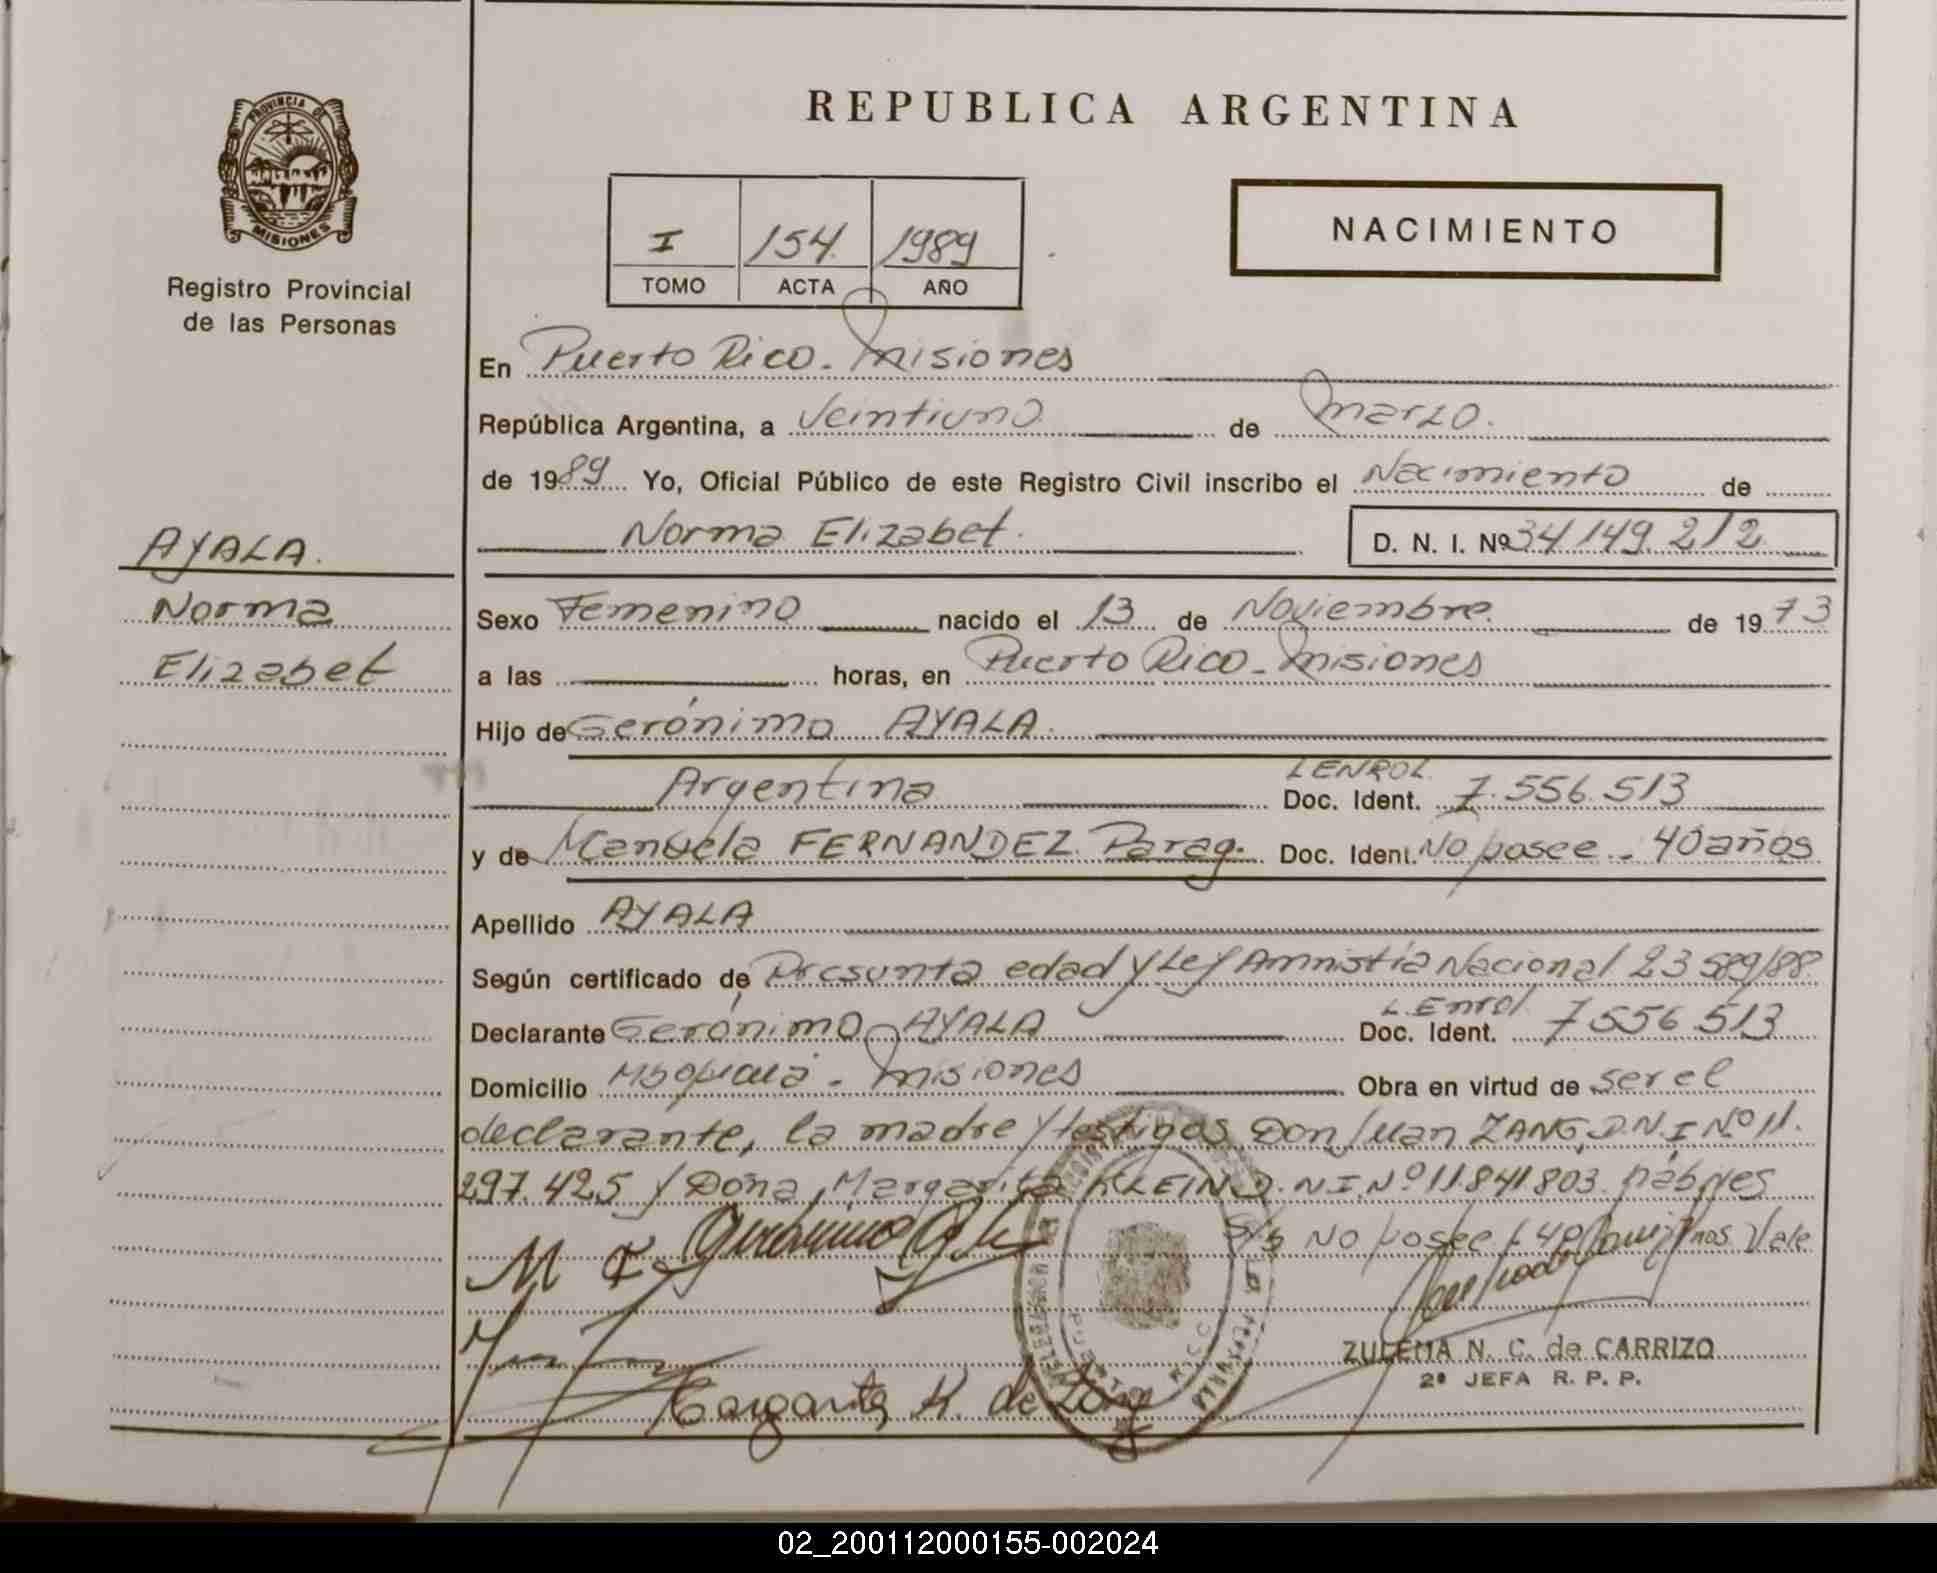 REPUBLICA ARGENTINA
PROVINCIA DE
MISIONES
Registro Provincial
de las Personas
NACIMIENTO
I 154 1989
TOMO ACTA AÑO
En Puerto Rico - Misiones
República Argentina, a Veintiuno de marzo.
de 1989 Yo, Oficial Público de este Registro Civil inscribo el Nacimiento de
Norma Elizabet. D. N. I. Nº 34 149.212
AYALA.
Norma
Elizabet
Sexo Femenino nacido el 13 de Noviembre. de 1973
a las horas, en Puerto Rico - Misiones
Hijo de Gerónimo AYALA.
LENROL.
Argentina Doc. Ident. 7.556.513
y de Manuela FERNANDEZ. Parag. Doc. Ident. No posee - 40 años
Apellido AYALA
Según certificado de Presunta edad y Ley Amnistía Nacional 23 589/88.
L. Enrol.
Declarante Gerónimo AYALA Doc. Ident. 7556.513
Domicilio - Misiones Obra en virtud de ser el
declarante, la madre y testigos Don Juan ZANG, D.N.I Nº 11.
297.425 y Doña Margarita KLEIN D.N.I.Nº 11.841.803. hábiles
S/b No posee Vale
M F Gerónimo
ZULEMA N. C. de CARRIZO
2ª JEFA R. P. P.
Margarita K. de Zang
02_200112000155-002024